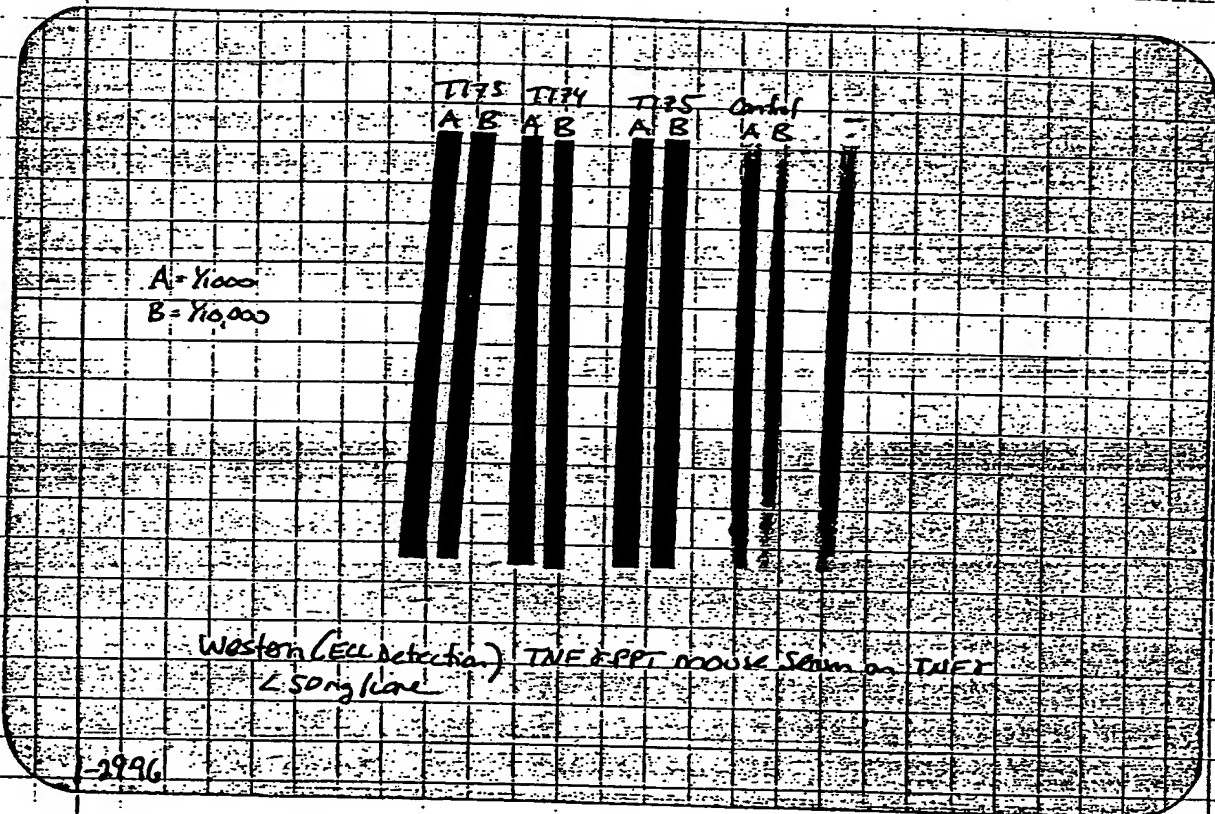 TT73 TT74 TT75 Control -
A B A B A B A B
A = 1/1000
B = 1/10,000
Western (ECL Detection) TNF PPT mouse Serum on
50ng/lane
1-29-96